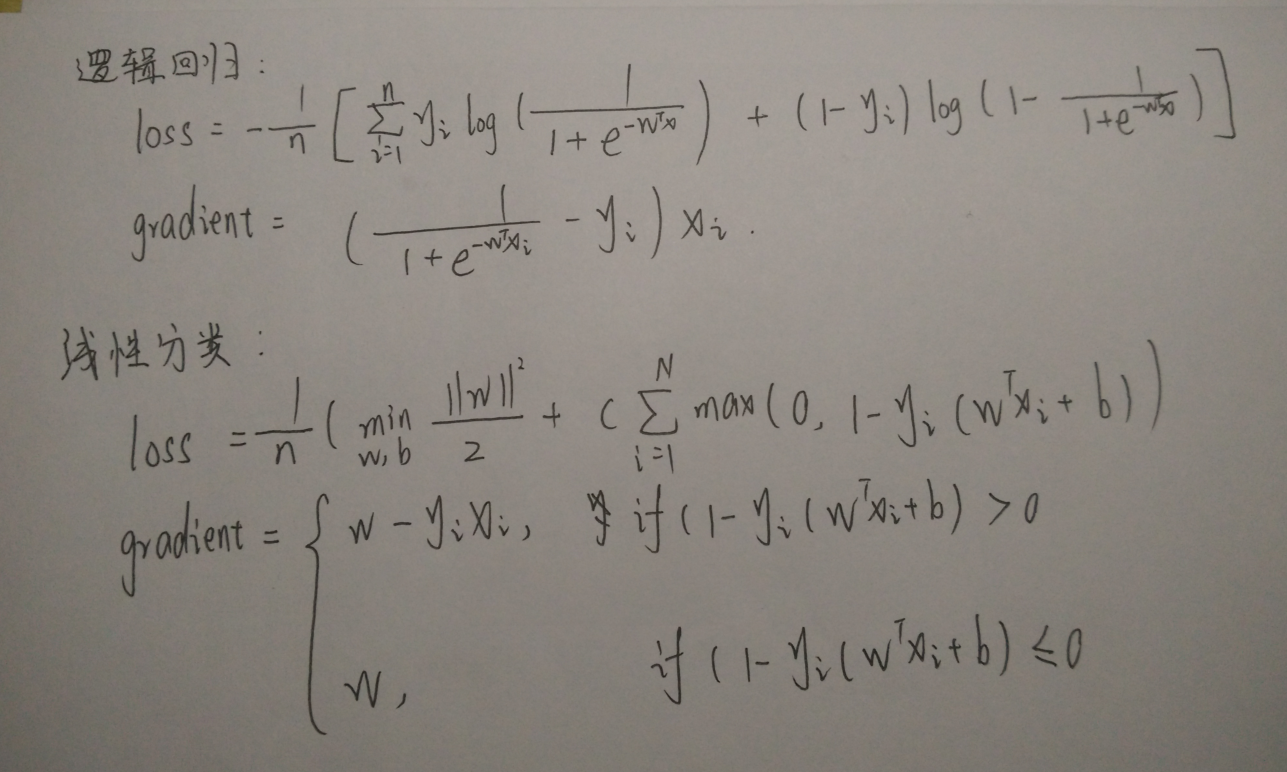 逻辑回归:
loss = -\frac{1}{n} [ \sum_{i=1}^{n} y_i log ( \frac{1}{1 + e^{-w^T x}} ) + (1 - y_i) log ( 1 - \frac{1}{1 + e^{-w^T x}} ) ]
gradient = ( \frac{1}{1 + e^{-w^T x_i}} - y_i ) x_i .
线性分类:
loss = \frac{1}{n} ( \min_{w, b} \frac{||w||^2}{2} + C \sum_{i=1}^{N} max ( 0, 1 - y_i (w^T x_i + b) ) )
gradient = { w - y_i x_i , if ( 1 - y_i (w^T x_i + b) > 0
w , if ( 1 - y_i (w^T x_i + b) ≤ 0